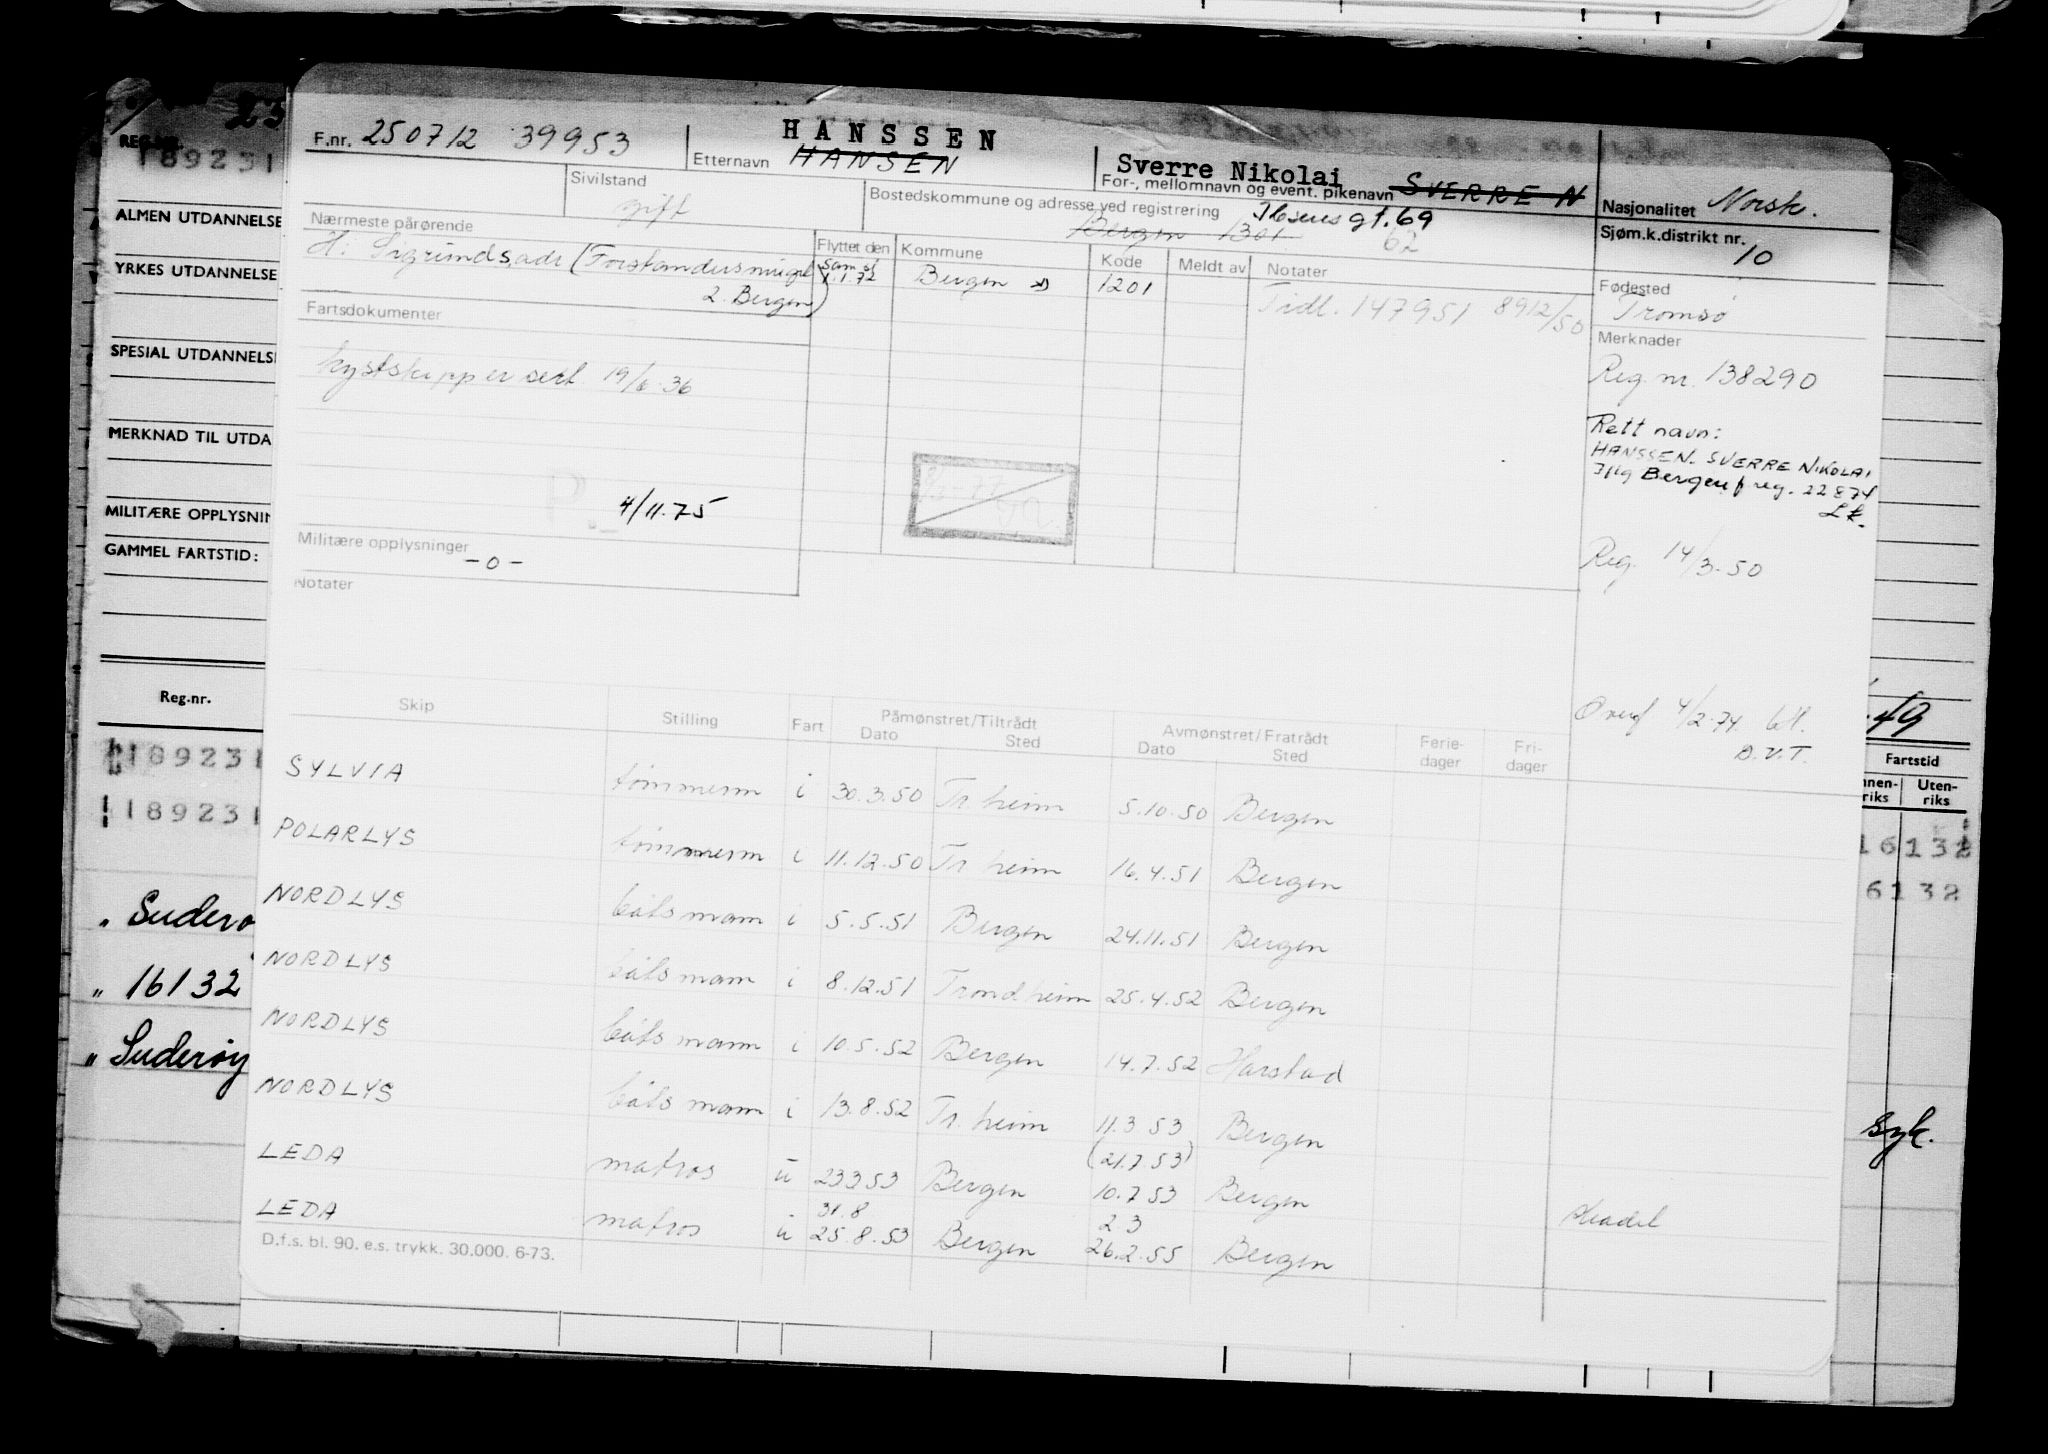 F.nr. 250712 39953
Etternavn HANSSEN
HANSEN
Sverre Nikolai
For-, mellomnavn og event. pikenavn SVERRE N
Nasjonalitet Norsk.
Sjøm.k.distrikt nr. 10
Sivilstand gift
Bostedskommune og adresse ved registrering Ibsens gt. 69
Bergen 1301 62
Nærmeste pårørende
H: Sigrund s.adr (Forstandersmuget
2. Bergen)
Flyttet den Kommune Kode Meldt av Notater
1.1.72 Bergen 1201
Tidl. 147951 8912/50
Fødested
Tromsø
Merknader
Reg. nr. 138290
Rett navn:
HANSSEN. SVERRE NIKOLAI
Iflg Bergen f reg. 22874
Lk.
Reg. 14/3.50
Overf 4/2.74 64.
D.V.T.
Fartsdokumenter
kystskipper sert 19/6.36
4/11.75
Militære opplysninger
-0-
Notater
Skip Stilling Fart Påmønstret/Tiltrådt Avmønstret/Fratrådt Ferie-dager Fri-dager
Dato Sted Dato Sted
SYLVIA tømmerm i 30.3.50 Tr. heim 5.10.50 Bergen
POLARLYS tømmerm i 11.12.50 Tr. heim 16.4.51 Bergen
NORDLYS båtsmann i 5.5.51 Bergen 24.11.51 Bergen
NORDLYS båtsmann i 8.12.51 Trondheim 25.4.52 Bergen
NORDLYS båtsmann i 10.5.52 Bergen 14.7.52 Harstad
NORDLYS båtsmann i 13.8.52 Tr. heim 11.3 53 Bergen
(21.7.53)
LEDA matros u 23353 Bergen 10.7 53 Bergen
31.8 2 3
LEDA matros u 25.8.53 Bergen 26.2.55 Bergen
D.f.s. bl. 90. e.s. trykk. 30.000. 6-73.
REG.NR.
189231
ALMEN UTDANNELSE
YRKES UTDANNELSE
SPESIAL UTDANNELSE
MERKNAD TIL UTDA
MILITÆRE OPPLYSNIN
GAMMEL FARTSTID:
Reg.nr.
189231
189231
" Suderø
" 16132
" Suderøy
49
Fartstid
nnen-riks Uten-riks
16132
6132
syk.